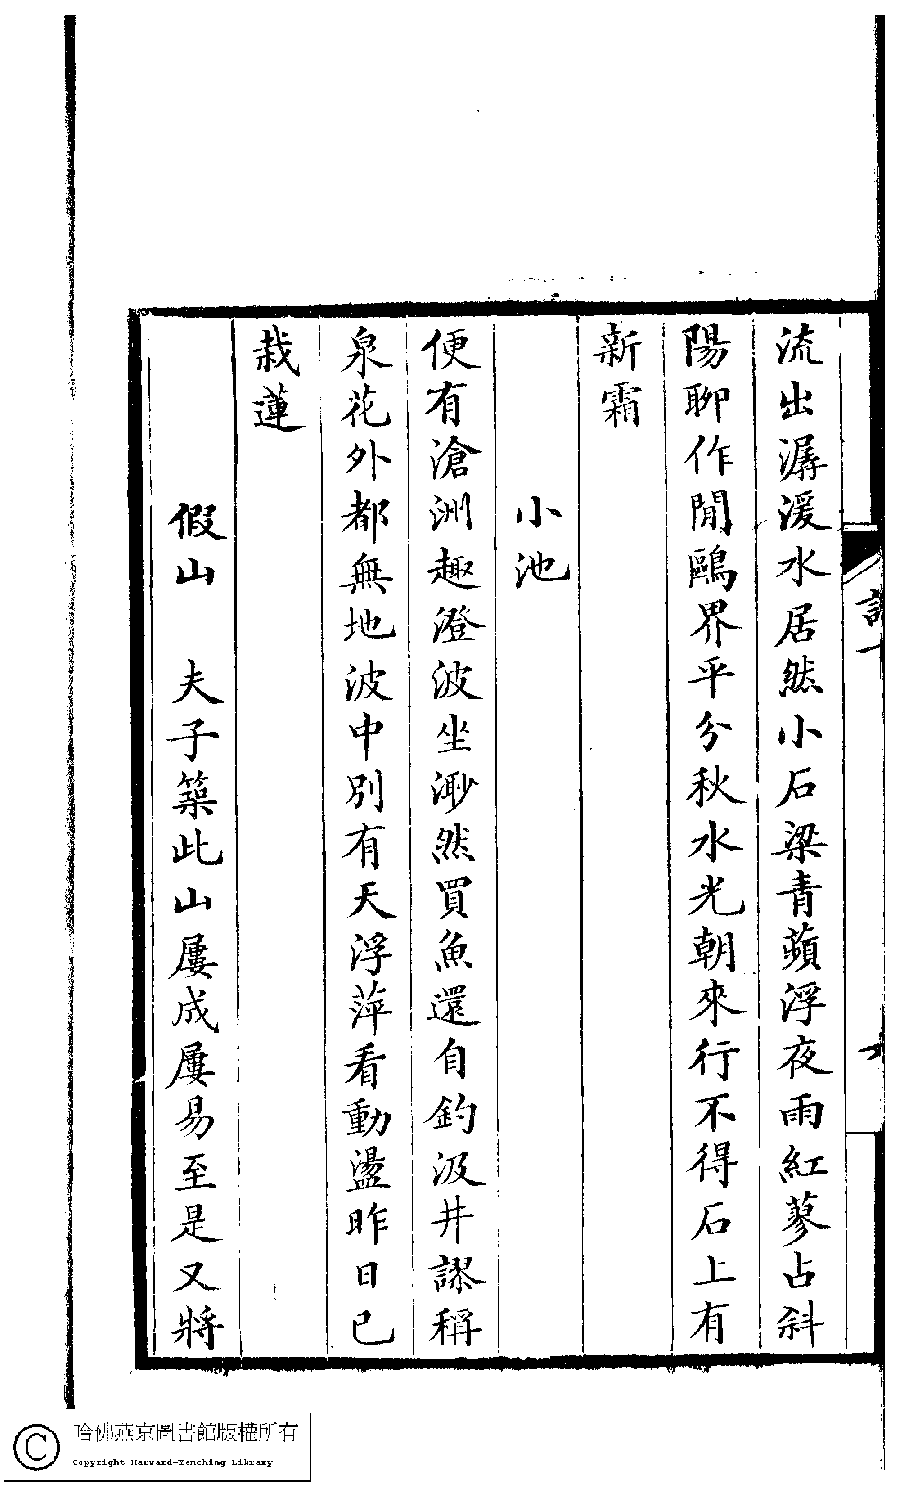 流出潺湲水居然小石梁青蘋浮夜雨紅蓼占斜
陽聊作閒鷗界平分秋水光朝來行不得石上有
新霜
小池
便有滄洲趣澄波坐渺然買魚還自釣汲井謬稱
泉花外都無地波中別有天浮萍看動盪昨日已
栽蓮
假山 夫子築此山屢成屢易至是又將
哈佛燕京圖書館版權所有
Copyright Harvard-Yenching Library